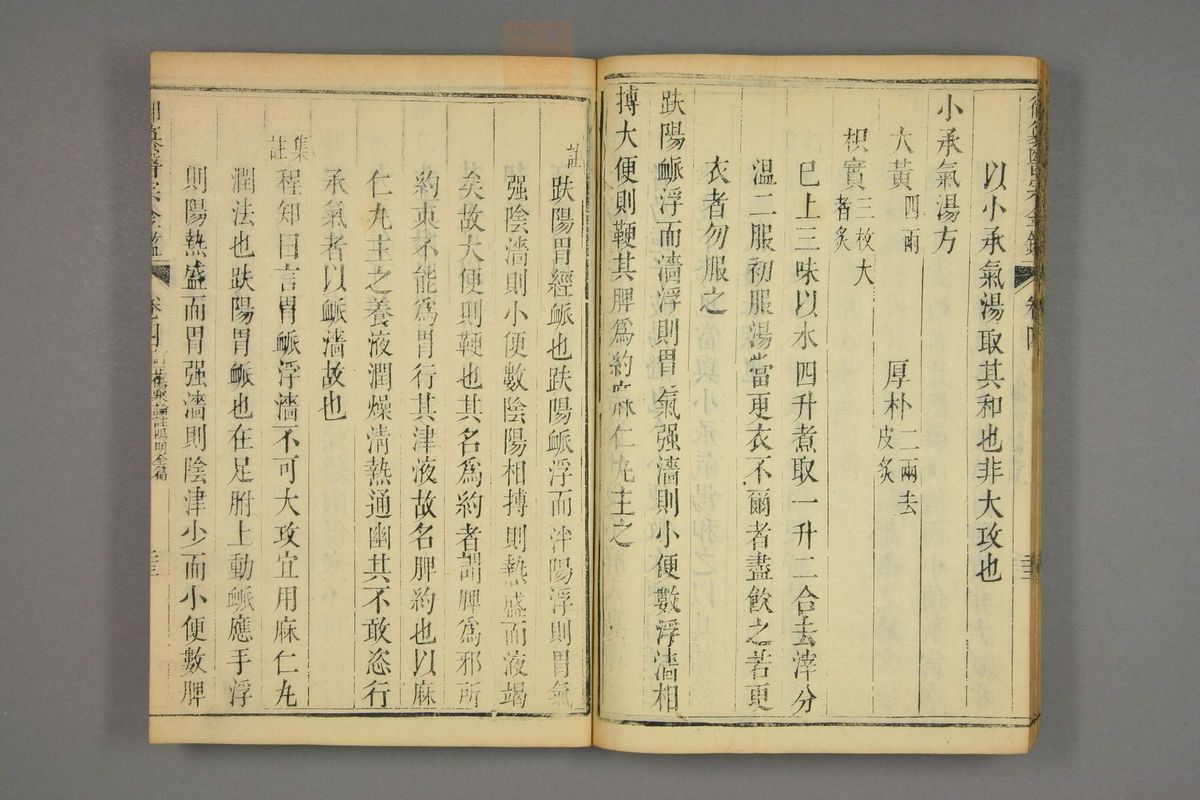 以小承氣湯取其和也非大攻也
小承氣湯方
大黃四兩 厚朴二兩去皮炙
枳實三枚大者炙
已上三味以水四升煮取一升二合去滓分
溫二服初服湯當更衣不爾者盡飲之若更
衣者勿服之
趺陽脈浮而濇浮則胃氣强濇則小便數浮濇相
搏大便則鞕其脾爲約麻仁丸主之
註趺陽胃經脈也趺陽脈浮而濇陽浮則胃氣
强陰濇則小便數陰陽相搏則熱盛而液竭
矣故大便則鞕也其名爲約者謂脾爲邪所
約束不能爲胃行其津液故名脾約也以麻
仁丸主之養液潤燥清熱通幽其不敢恣行
承氣者以脈濇故也
集註程知曰言胃脈浮濇不可大攻宜用麻仁丸
潤法也趺陽胃脈也在足胕上動脈應手浮
則陽熱盛而胃强濇則陰津少而小便數脾
卷四